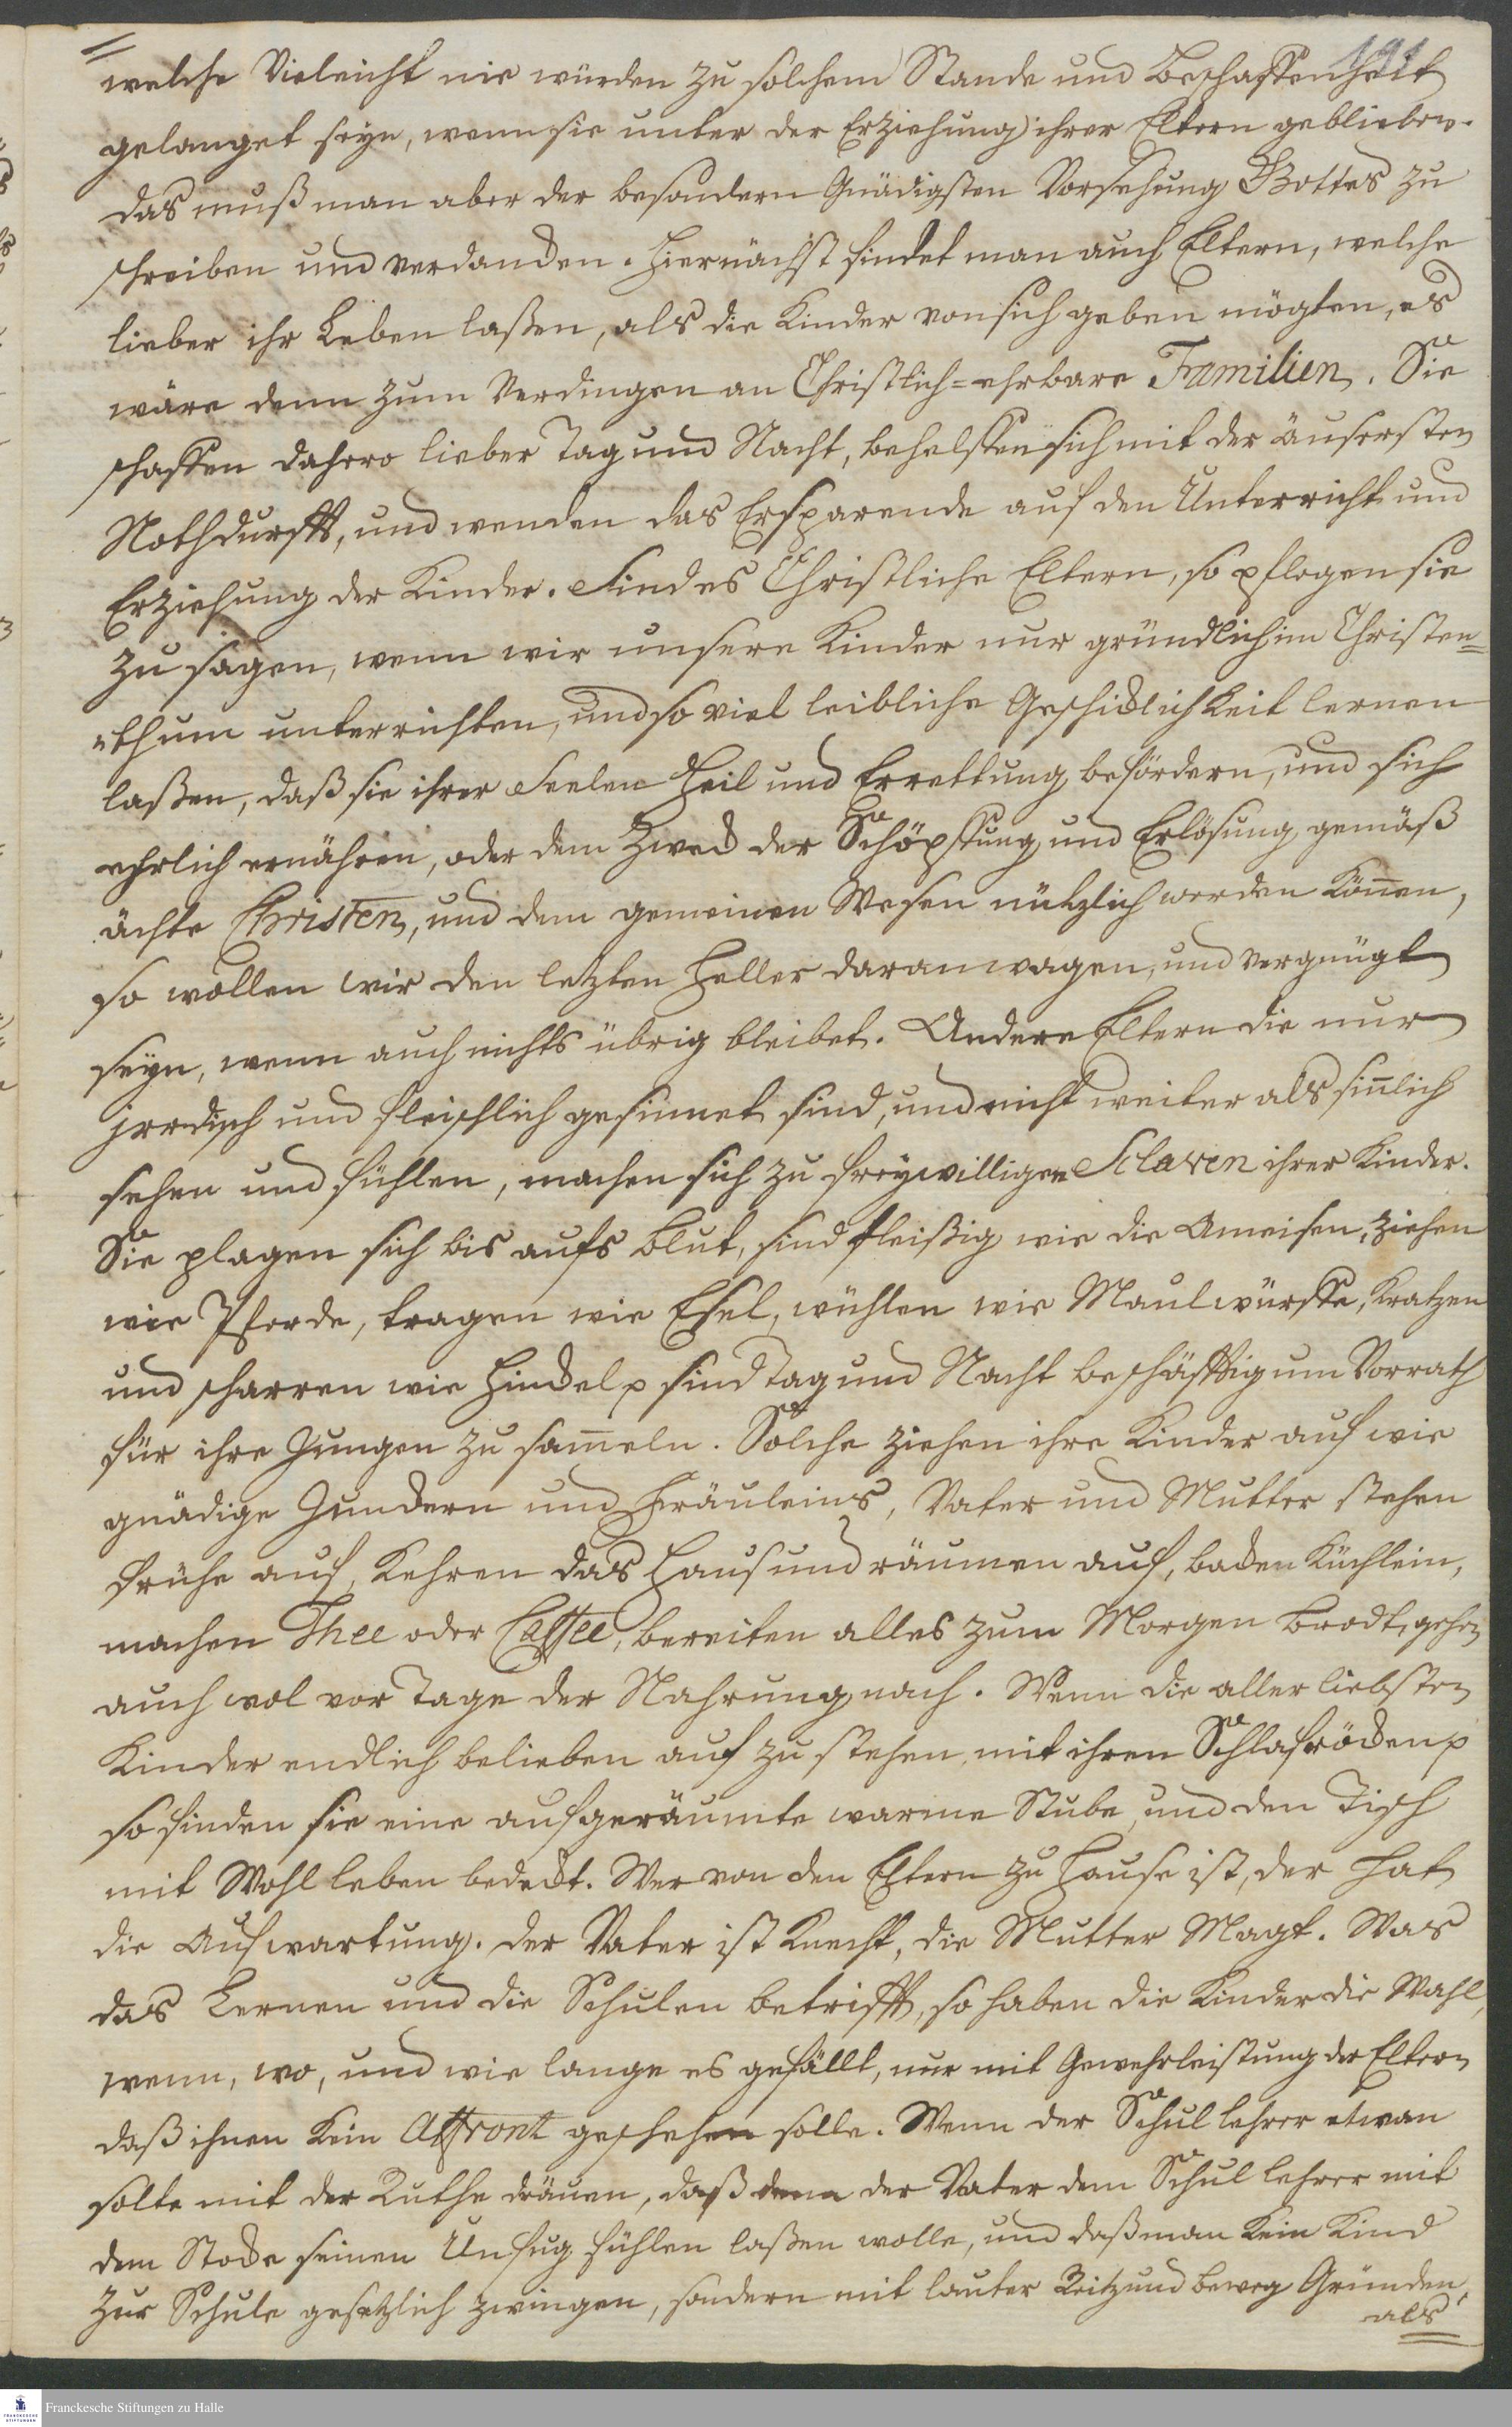 191
welche Vieleicht nie würden zu solchem Stande und Beschaffenheit
gelanget seyn, wenn sie unter der Erziehung ihrer Eltern geblieben.
das muß man aber der besondern Gnädigsten Vorsehung Gottes zu
schreiben und verdancken. Hiernächst findet man auch Eltern, welche
lieber ihr Leben laßen, als die Kinder von sich geben mögten, es
wäre denn zum Verdingen an Christlich=ehrbare Familien. Sie
schaffen dahero lieber Tag und Nacht, behelffen sich mit der äusersten
Nothdurfft, und wenden das Ersparende auf den Unterricht und
Erziehung der Kinder. Sind es Christliche Eltern, so pflegen sie
zu sagen, wenn wir unsere Kinder nur gründlich im Christen=
=thum unterrichten, und so viel leibliche Geschicklichkeit lernen
laßen, daß sie ihrer Seelen Heil und Errettung befördern, und sich
ehrlich ernähren, oder dem Zweck der Schöpffung und Erlösung gemäß
ächte Christen, und dem gemeinen Wesen nützlich werden können,
so wollen wir den letzten Heller daran wagen, und vergnügt
seyn, wenn auch nichts übrig bleibet. Andere Eltern die nur
jrrdisch und fleischlich gesinnet sind, und nicht weiter als sinlich
sehen und fühlen, machen sich zu freywilligen Sclaven ihrer Kinder.
Sie plagen sich bis aufs Blut, sind fleißig wie die Ameisen, ziehen
wie Pferde, tragen wie Esel, wühlen wie Maulwürffe, kratzen
und scharren wie Hinckel p sind Tag und Nacht beschäfftig um Vorrath
für ihre Jungen zu sameln. Solche ziehen ihre Kinder auf wie
gnädige Junckern und Fräuleins, Vater und Mutter stehen
frühe auf, kehren das Haus und räumen auf, backen Küchlein,
machen Thee oder Caffee, bereiten alles zum Morgen Brodt, gehen
auch wol vor Tage der Nahrung nach. Wenn die aller liebsten
Kinder endlich belieben auf zu stehen, mit ihren Schlafröcken p
so finden sie eine aufgeräumte warme Stube, und den Tisch
mit Wohlleben bedeckt. Wer von den Eltern zu Hause ist, der hat
die Aufwartung. der Vater ist Knecht, die Mutter Magt. Was
das Lernen und die Schulen betrifft, so haben die Kinder die Wahl,
wenn, wo, und wie lange es gefällt, nur mit Gewehrleistung der Eltern
daß ihnen kein Affront geschehen solle. Wenn der Schullehrer etwan
solte mit der Ruthe dräuen, daß denn der Vater dem Schullehrer mit
dem Stocke seinen Unfug fühlen laßen wolle, und daß man kein Kind
zur Schule gesetzlich zwingen, sondern mit lauter Reitz und beweg Gründen,
als
Franckesche Stiftungen zu Halle